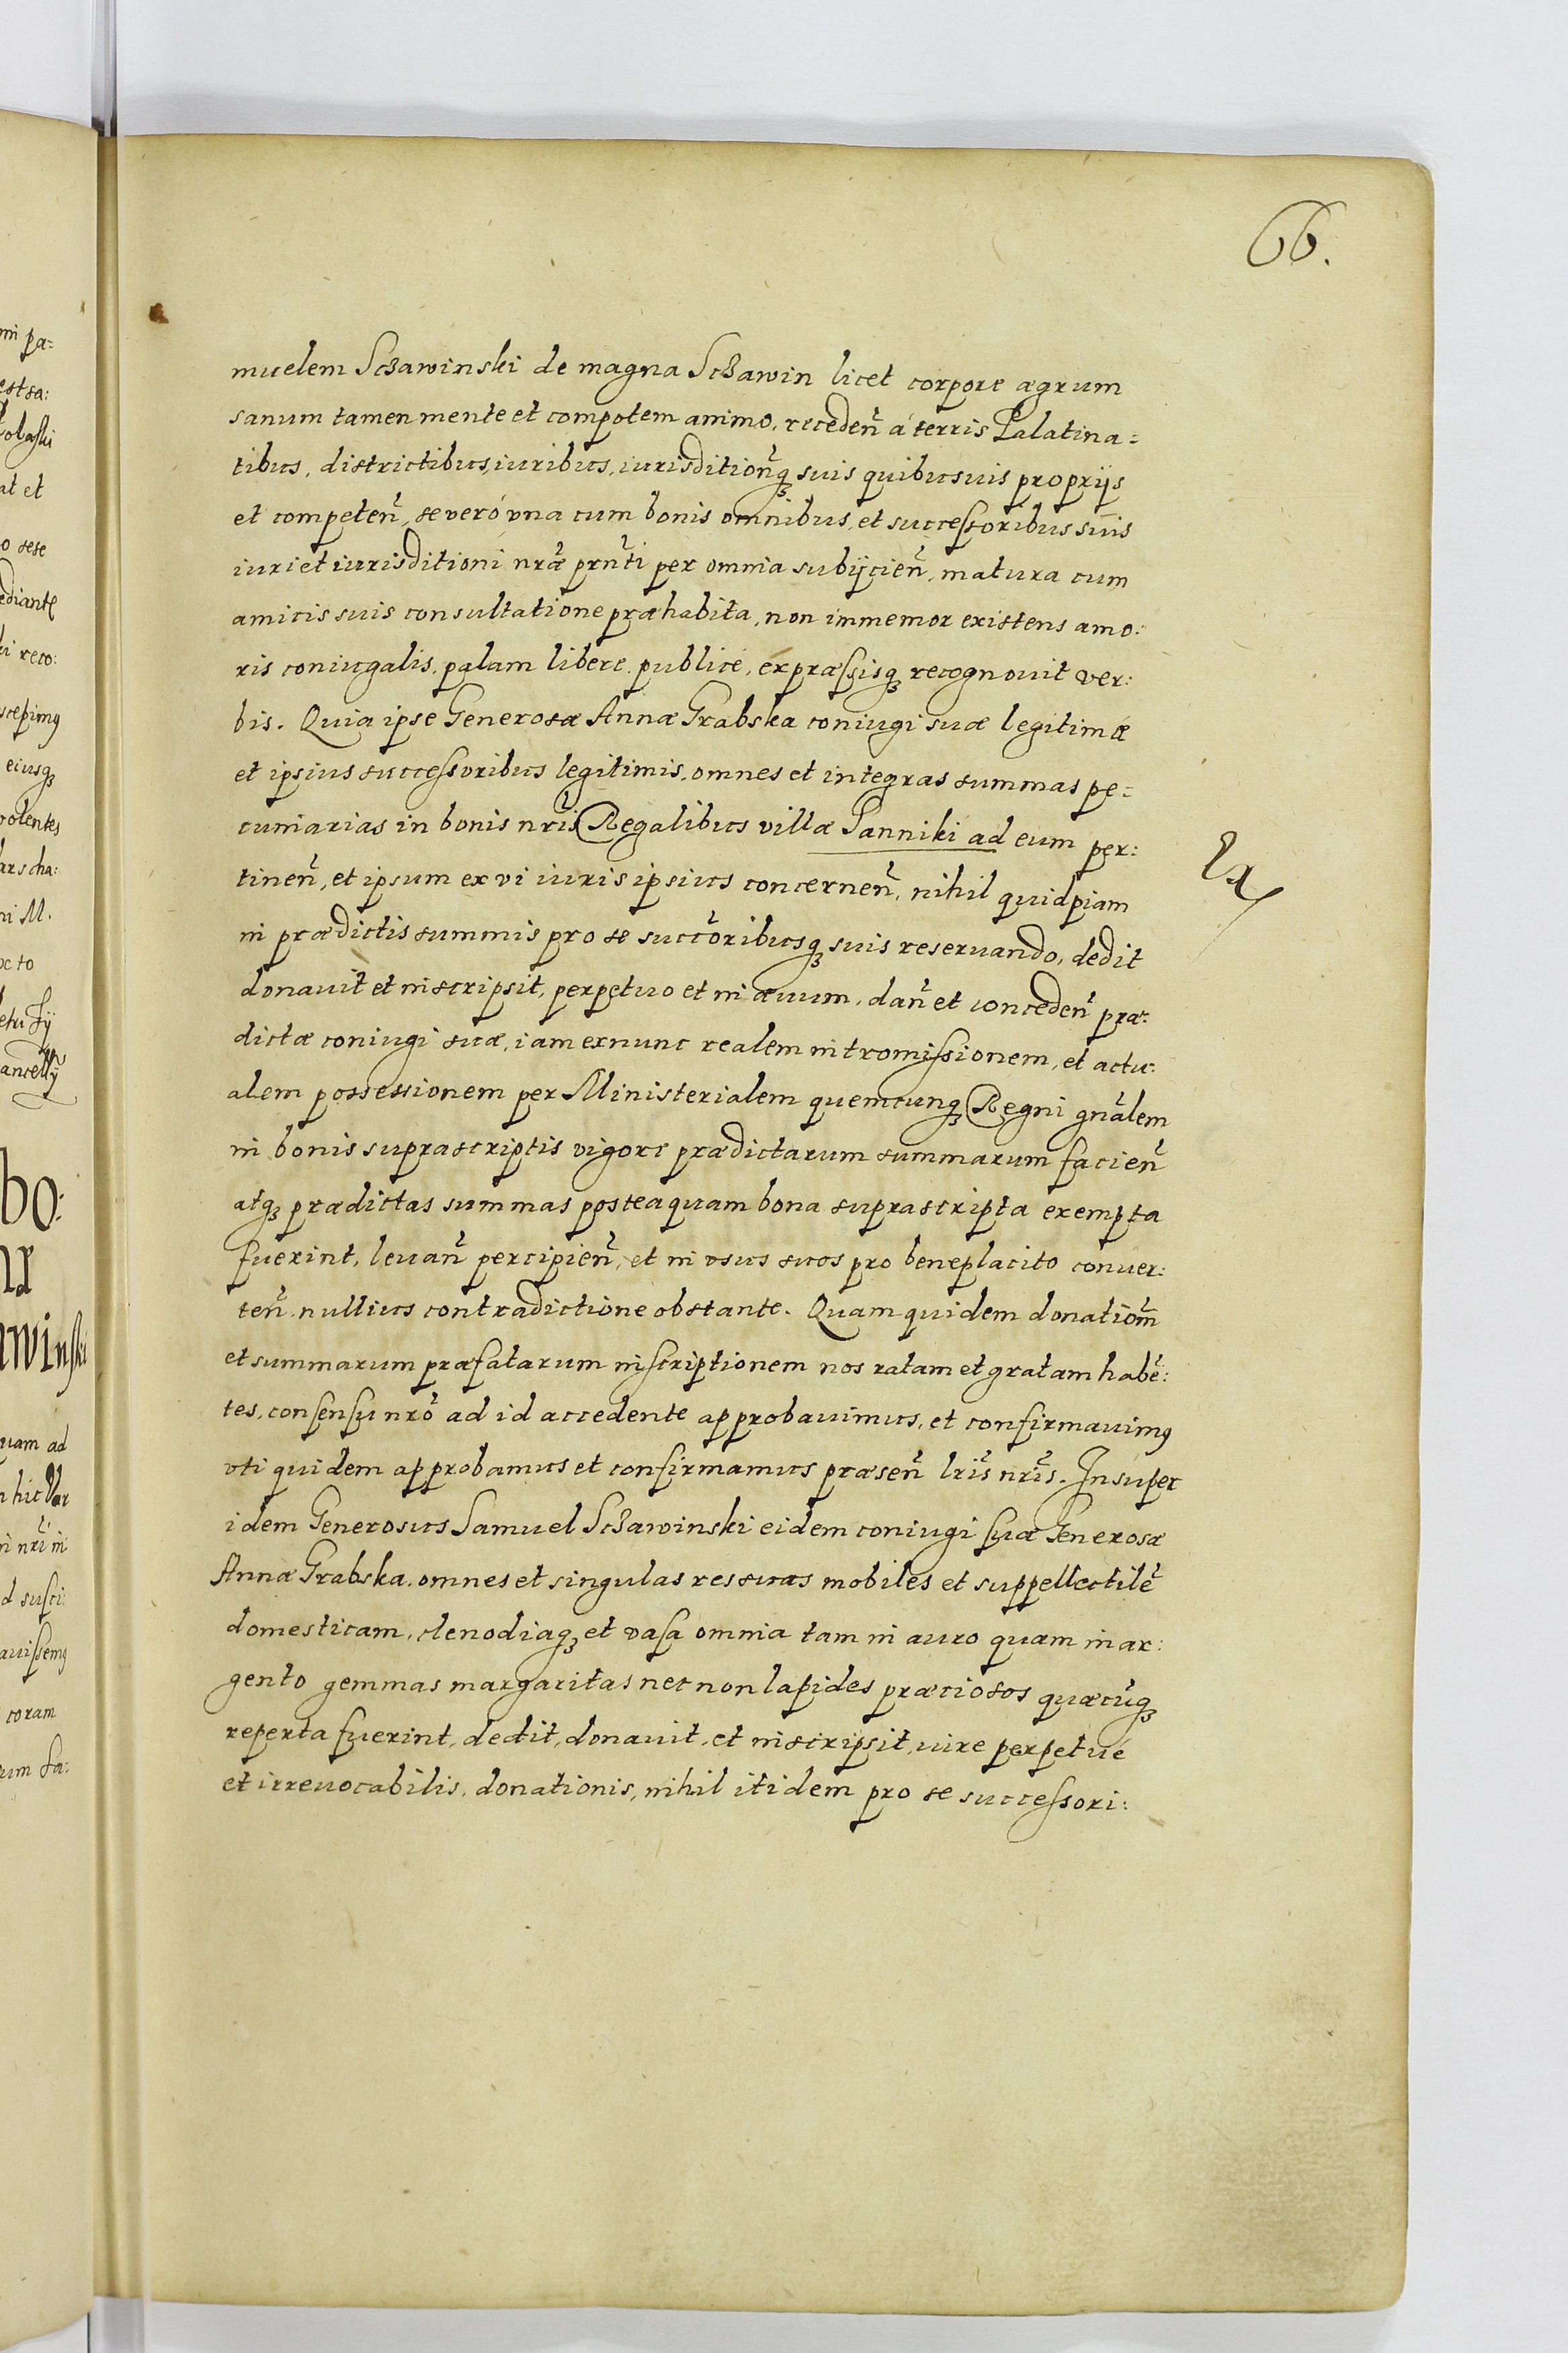 66.
muelem Sczawinski de magna Sczawin licet corpore ægrum
sanum tamen mente et compotem animo, receden̄ á terris Palatina=
tibus, districtibus, iuribus, iurisdition̄q₃ suis quibusuis proprijs
et competen̄, se veró vna cum bonis omnibus, et successoribus suis
iuri et iurisditioni nr̄æ prn̄ti per omnia subijcien̄, matura cum
amicis suis consultatione præhabita, non immemor existens amo:
ris coniugalis, palam libere publicé, expræssisq₃ recognouit ver:
bis. Quia ipse Generosæ Annæ Grabska coniugi suæ legitimæ
et ipsius successoribus legitimis, omnes et integras summas pe=
cuniarias in bonis nr̄is Regalibus villæ Panniki ad eum per:
tinen̄, et ipsum ex vi iuris ipsius concernen̄, nihil quidpiam
in prædictis summis pro se succ̄oribusq₃ suis reseruando, dedit
donauit et inscripsit, perpetuo et in æuum, dan̄ et conceden̄ præ:
dictæ coniugi suæ, iam exnunc realem intromissionem, et actu:
alem possessionem per Ministerialem quemcunq₃ Regni gn̄alem
in bonis suprascriptis vigore prædictarum summarum facien̄
atq₃ prædictas summas posteaquam bona suprascripta exempta
fuerint, leuan̄ percipien̄, et in vsus suos pro beneplacito conuer:
ten̄ nullius contradictione obstante. Quam quidem donatiōm
et summarum præfatarum inscriptionem nos ratam et gratam habē:
tes, consensu nr̄o ad id accedente approbauimus, et confirmauimus
vti quidem approbamus et confirmamus præsen̄ lr̄is nr̄is. Insuper
idem Generosus Samuel Sczawinski eidem coniugi suæ Generosæ
Annæ Grabska, omnes et singulas res suas mobiles et suppellectilē
domesticam, clenodiaq₃ et vasa omnia tam in auro quam in ar:
gento gemmas margaritas nec non lapides præciosos quæcūq₃
reperta fuerint, dedit, donauit, et inscripsit, iure perpetuę
et irreuocabilis, donationis, nihil itidem pro se successori: